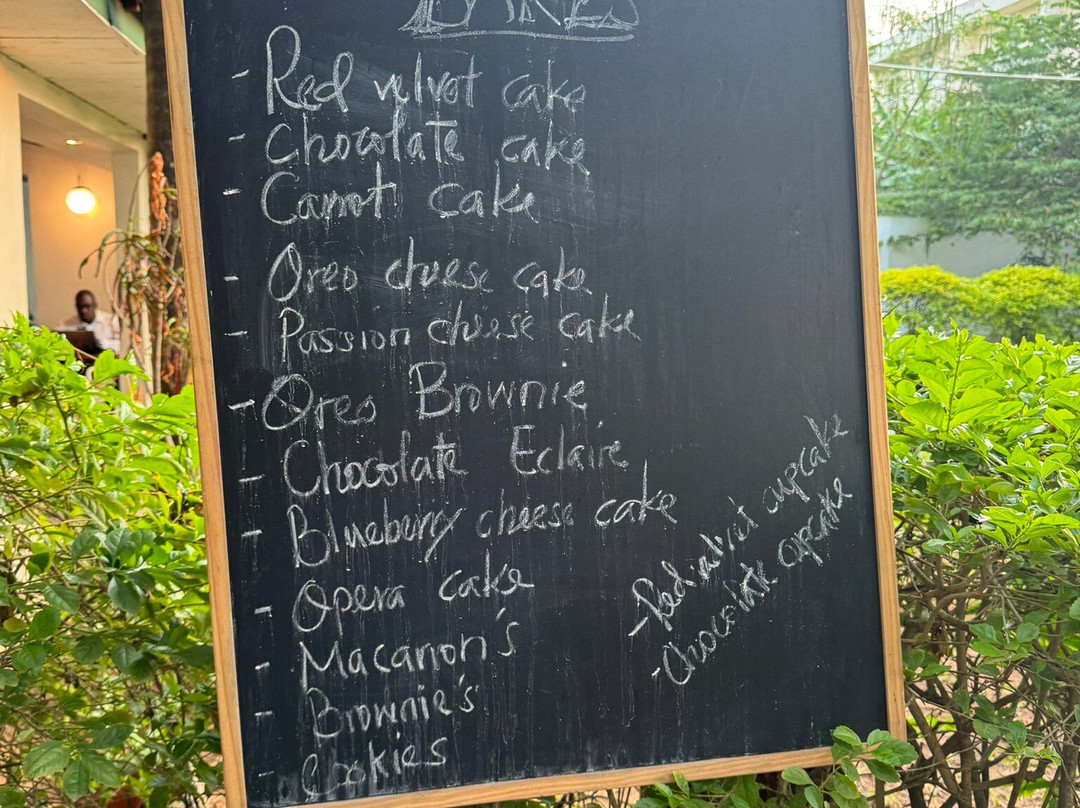 - Red velvet cake
- Chocolate cake
- Carrot cake
- Oreo cheese cake
- Passion cheese cake
- Oreo Brownie
- Chocolate Eclaire
- Blueberry cheese cake
- Opera cake
- Macaron's
- Brownie's
- Cookies
- Red velvet cupcake
- Chocolate cupcake